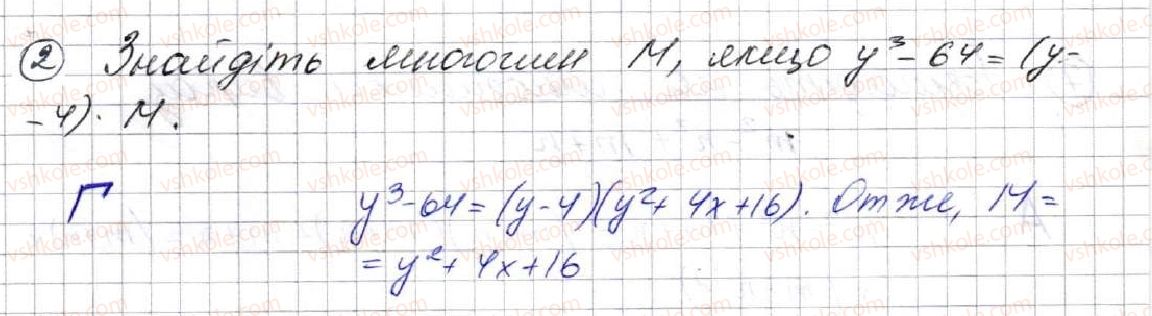 ② Знайдіть многочлен М, якщо y³ - 64 = (y-
-4) · М.
Г y³ - 64 = (y - 4)(y² + 4x + 16). Отже, М =
= y² + 4x + 16